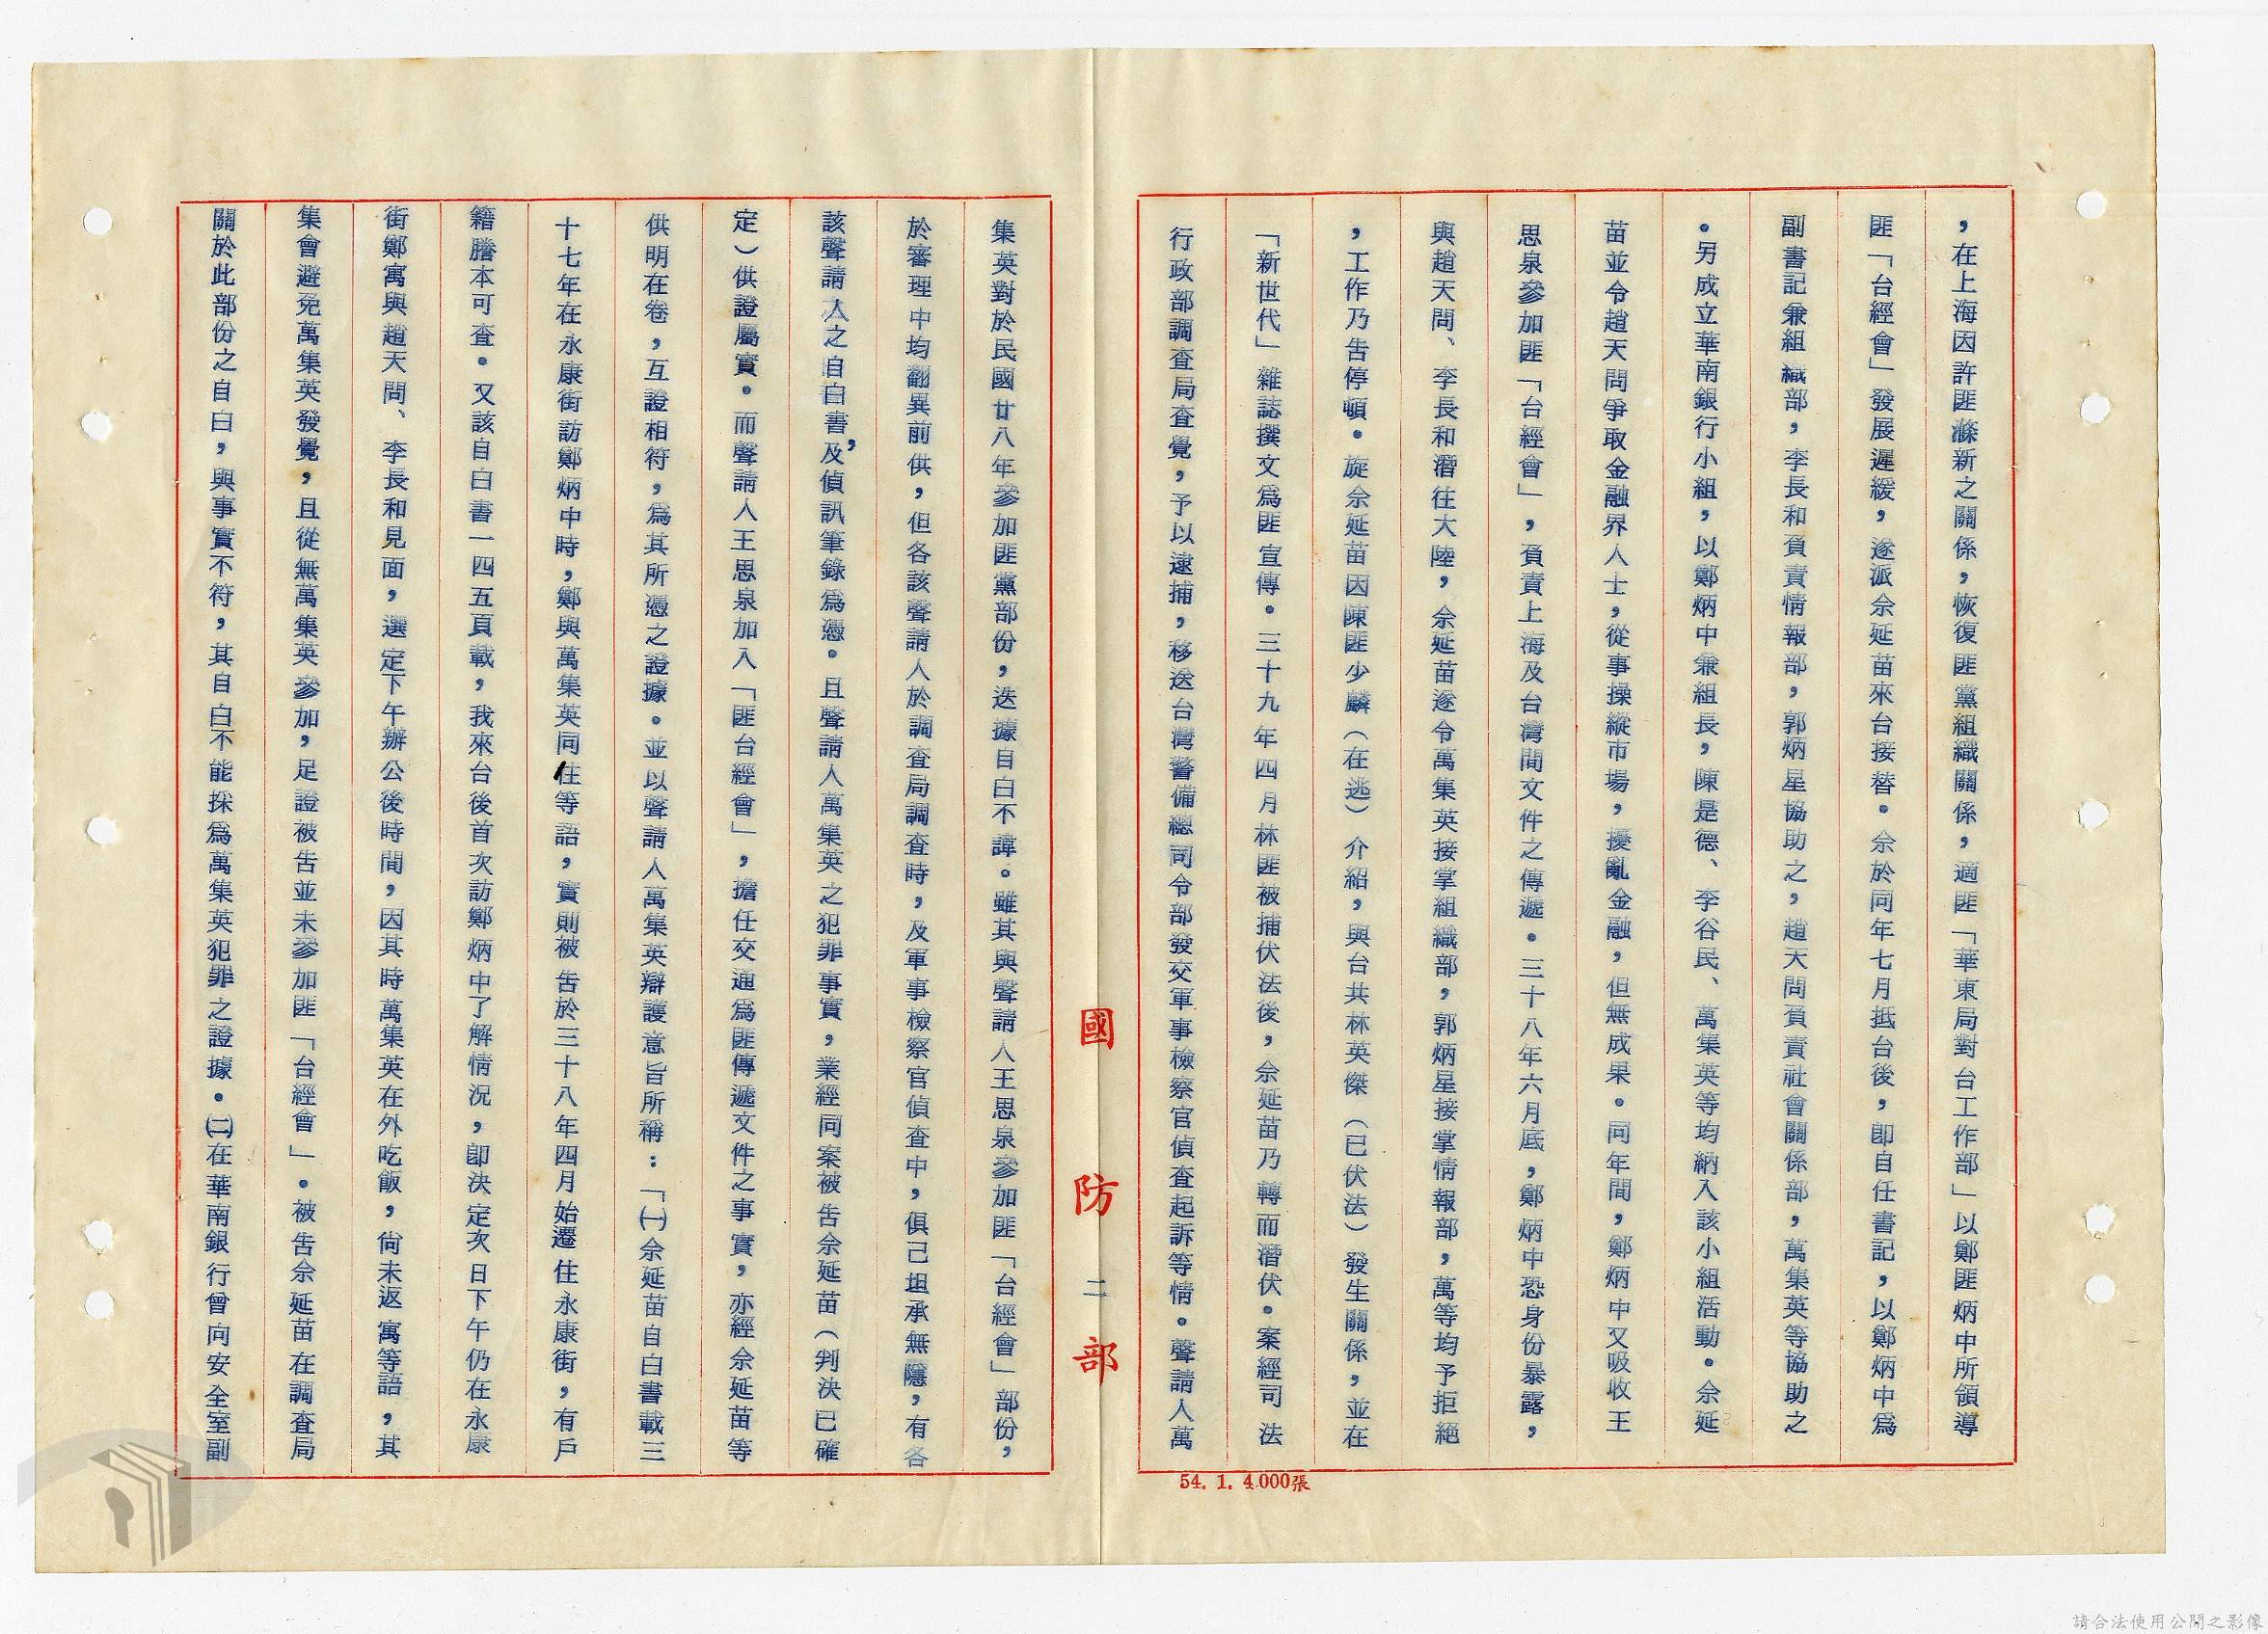 ，在上海因許匪滌新之關係，恢復匪黨組織關係，適匪「華東局對台工作部」以鄭匪炳中所領導
匪「台經會」發展遲緩，遂派余延苗來台接替。余於同年七月抵台後，卽自任書記，以鄭炳中爲
副書記兼組織部，李長和負責情報部，郭炳星協助之，趙天問負責社會關係部，萬集英等協助之
。另成立華南銀行小組，以鄭炳中兼組長，陳是德、李谷民、萬集英等均納入該小組活動。余延
苗並令趙天問爭取金融界人士，從事操縱市場，擾亂金融，但無成果。同年間，鄭炳中又吸收王
思泉參加匪「台經會」，負責上海及台灣間文件之傳遞。三十八年六月底，鄭炳中恐身份暴露，
與趙天問、李長和潛往大陸，余延苗遂令萬集英接掌組織部，郭炳星接掌情報部，萬等均予拒絕
，工作乃告停頓。旋余延苗因陳匪少麟（在逃）介紹，與台共林英傑（已伏法）發生關係，並在
「新世代」雜誌撰文爲匪宣傳。三十九年四月林匪被捕伏法後，余延苗乃轉而潛伏。案經司法
行政部調査局査覺，予以逮捕，移送台灣警備總司令部發交軍事檢察官偵査起訴等情。聲請人萬
54. 1. 4.000張
國防二部
集英對於民國廿八年參加匪黨部份，迭據自白不諱。雖其與聲請人王思泉參加匪「台經會」部份，
於審理中均翻異前供，但各該聲請人於調査局調査時，及軍事檢察官偵査中，俱已坦承無隱，有各
該聲請人之自白書，及偵訊筆錄爲憑。且聲請人萬集英之犯罪事實，業經同案被告余延苗（判決已確
定）供證屬實。而聲請人王思泉加入「匪台經會」，擔任交通爲匪傳遞文件之事實，亦經余延苗等
供明在卷，互證相符，爲其所憑之證據。並以聲請人萬集英辯護意旨所稱：「㈠余延苗自白書載三
十七年在永康街訪鄭炳中時，鄭與萬集英同住等語，實則被告於三十八年四月始遷住永康街，有戶
籍謄本可査。又該自白書一四五頁載，我來台後首次訪鄭炳中了解情況，卽決定次日下午仍在永康
街鄭寓與趙天問、李長和見面，選定下午辦公後時間，因其時萬集英在外吃飯，尙未返寓等語，其
集會避免萬集英發覺，且從無萬集英參加，足證被告並未參加匪「台經會」。被告余延苗在調査局
關於此部份之自白，與事實不符，其自白不能採爲萬集英犯罪之證據。㈡在華南銀行曾向安全室副
請合法使用公開之影像